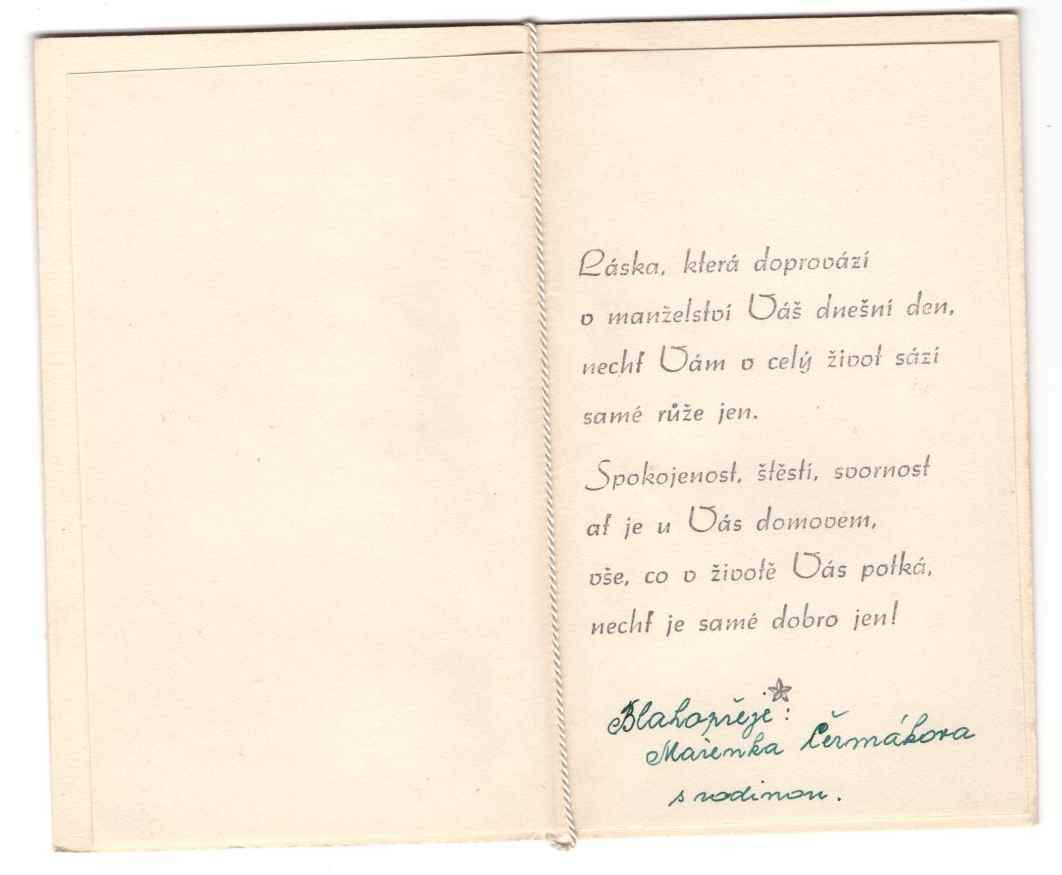 Láska, která doprovází
v manželství Váš dnešní den,
nechť Vám v celý život sází
samé růže jen.
Spokojenost, štěstí, svornost
ať je u Vás domovem,
vše, co v životě Vás potká,
nechť je samé dobro jen!
Blahopřeje:
Mařenka Čermákova
s rodinou.